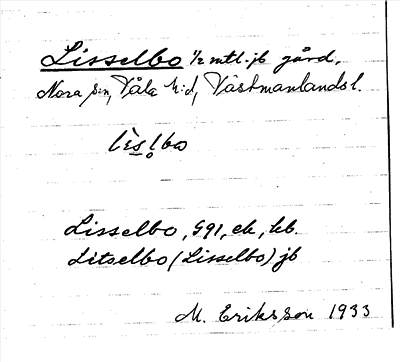 Lisselbo ½ mtl. jb gård,
Nora sn, Våla h:d, Västmanlands l.
lìs̲l̥bo
Lisselbo, G91, ek, kb.
Litselbo (Lisselbo) jb
M. Eriksson 1933